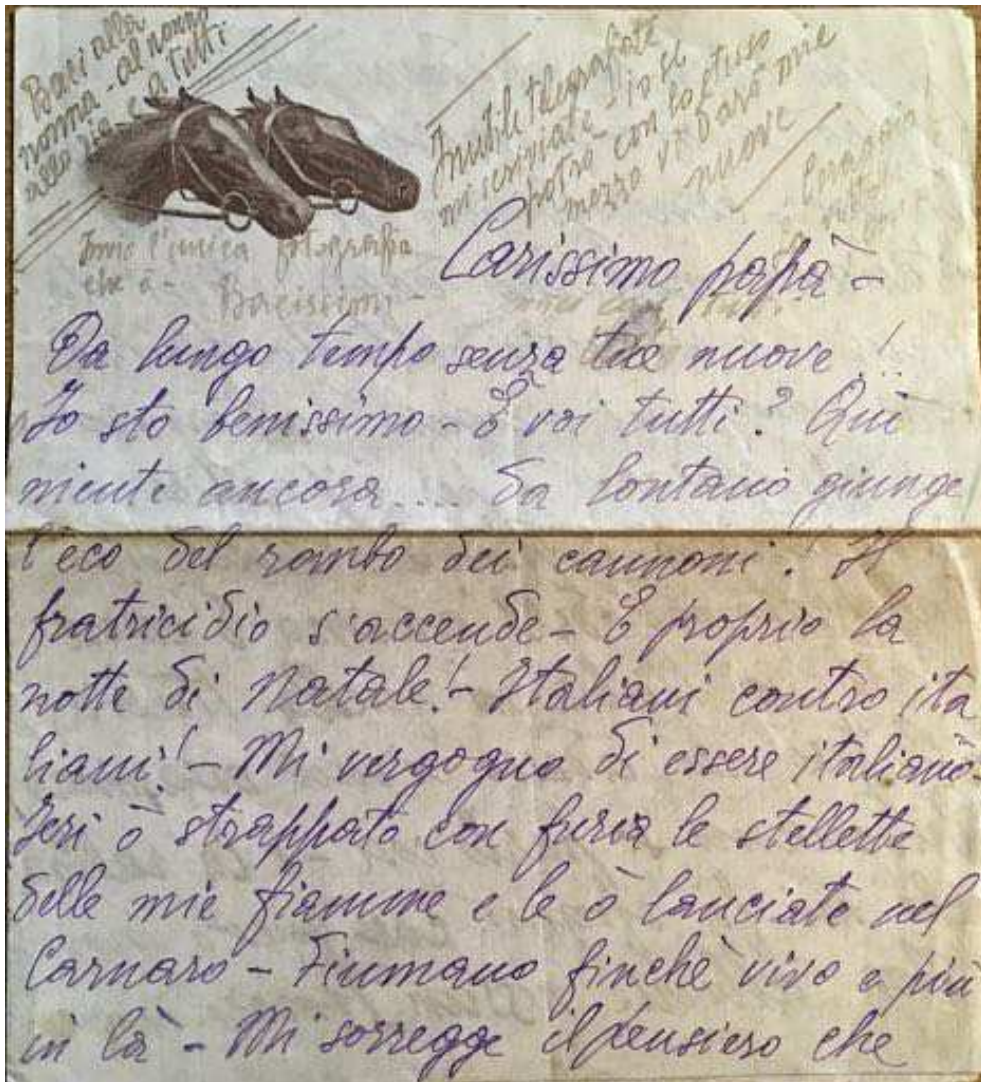 Baci alla
nonna - al nonno
allo zio e a tutti
Inutile telegrafiate
mi scriviate - io se
potrò con lo stesso
mezzo vi darò mie
nuove
Coraggio
Invio l'unica fotografia
che ò -
Bacissimi -
Carissimo papà -
Da lungo tempo senza tue nuove!
Io sto benissimo - E voi tutti? Qui
niente ancora.... Da lontano giunge
l'eco del rombo dei cannoni! Il
fratricidio s'accende - È proprio la
notte di Natale! - Italiani contro ita
liani! - Mi vergogno di essere italiano -
Ieri ò strappato con furia le stellette
delle mie fiamme e le ò lanciate nel
Carnaro - Fiumano finchè vivo e più
in là - Mi sorregge il pensiero che